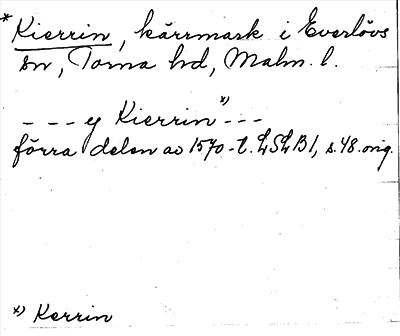 *Kierrin, kärrmark i Everlövs
sn, Torna hd, Malm. l.
- - - y Kierrin x) - - -
förra delen av 1570-t. LSLB1, s. 48. orig.
x) Kerrin